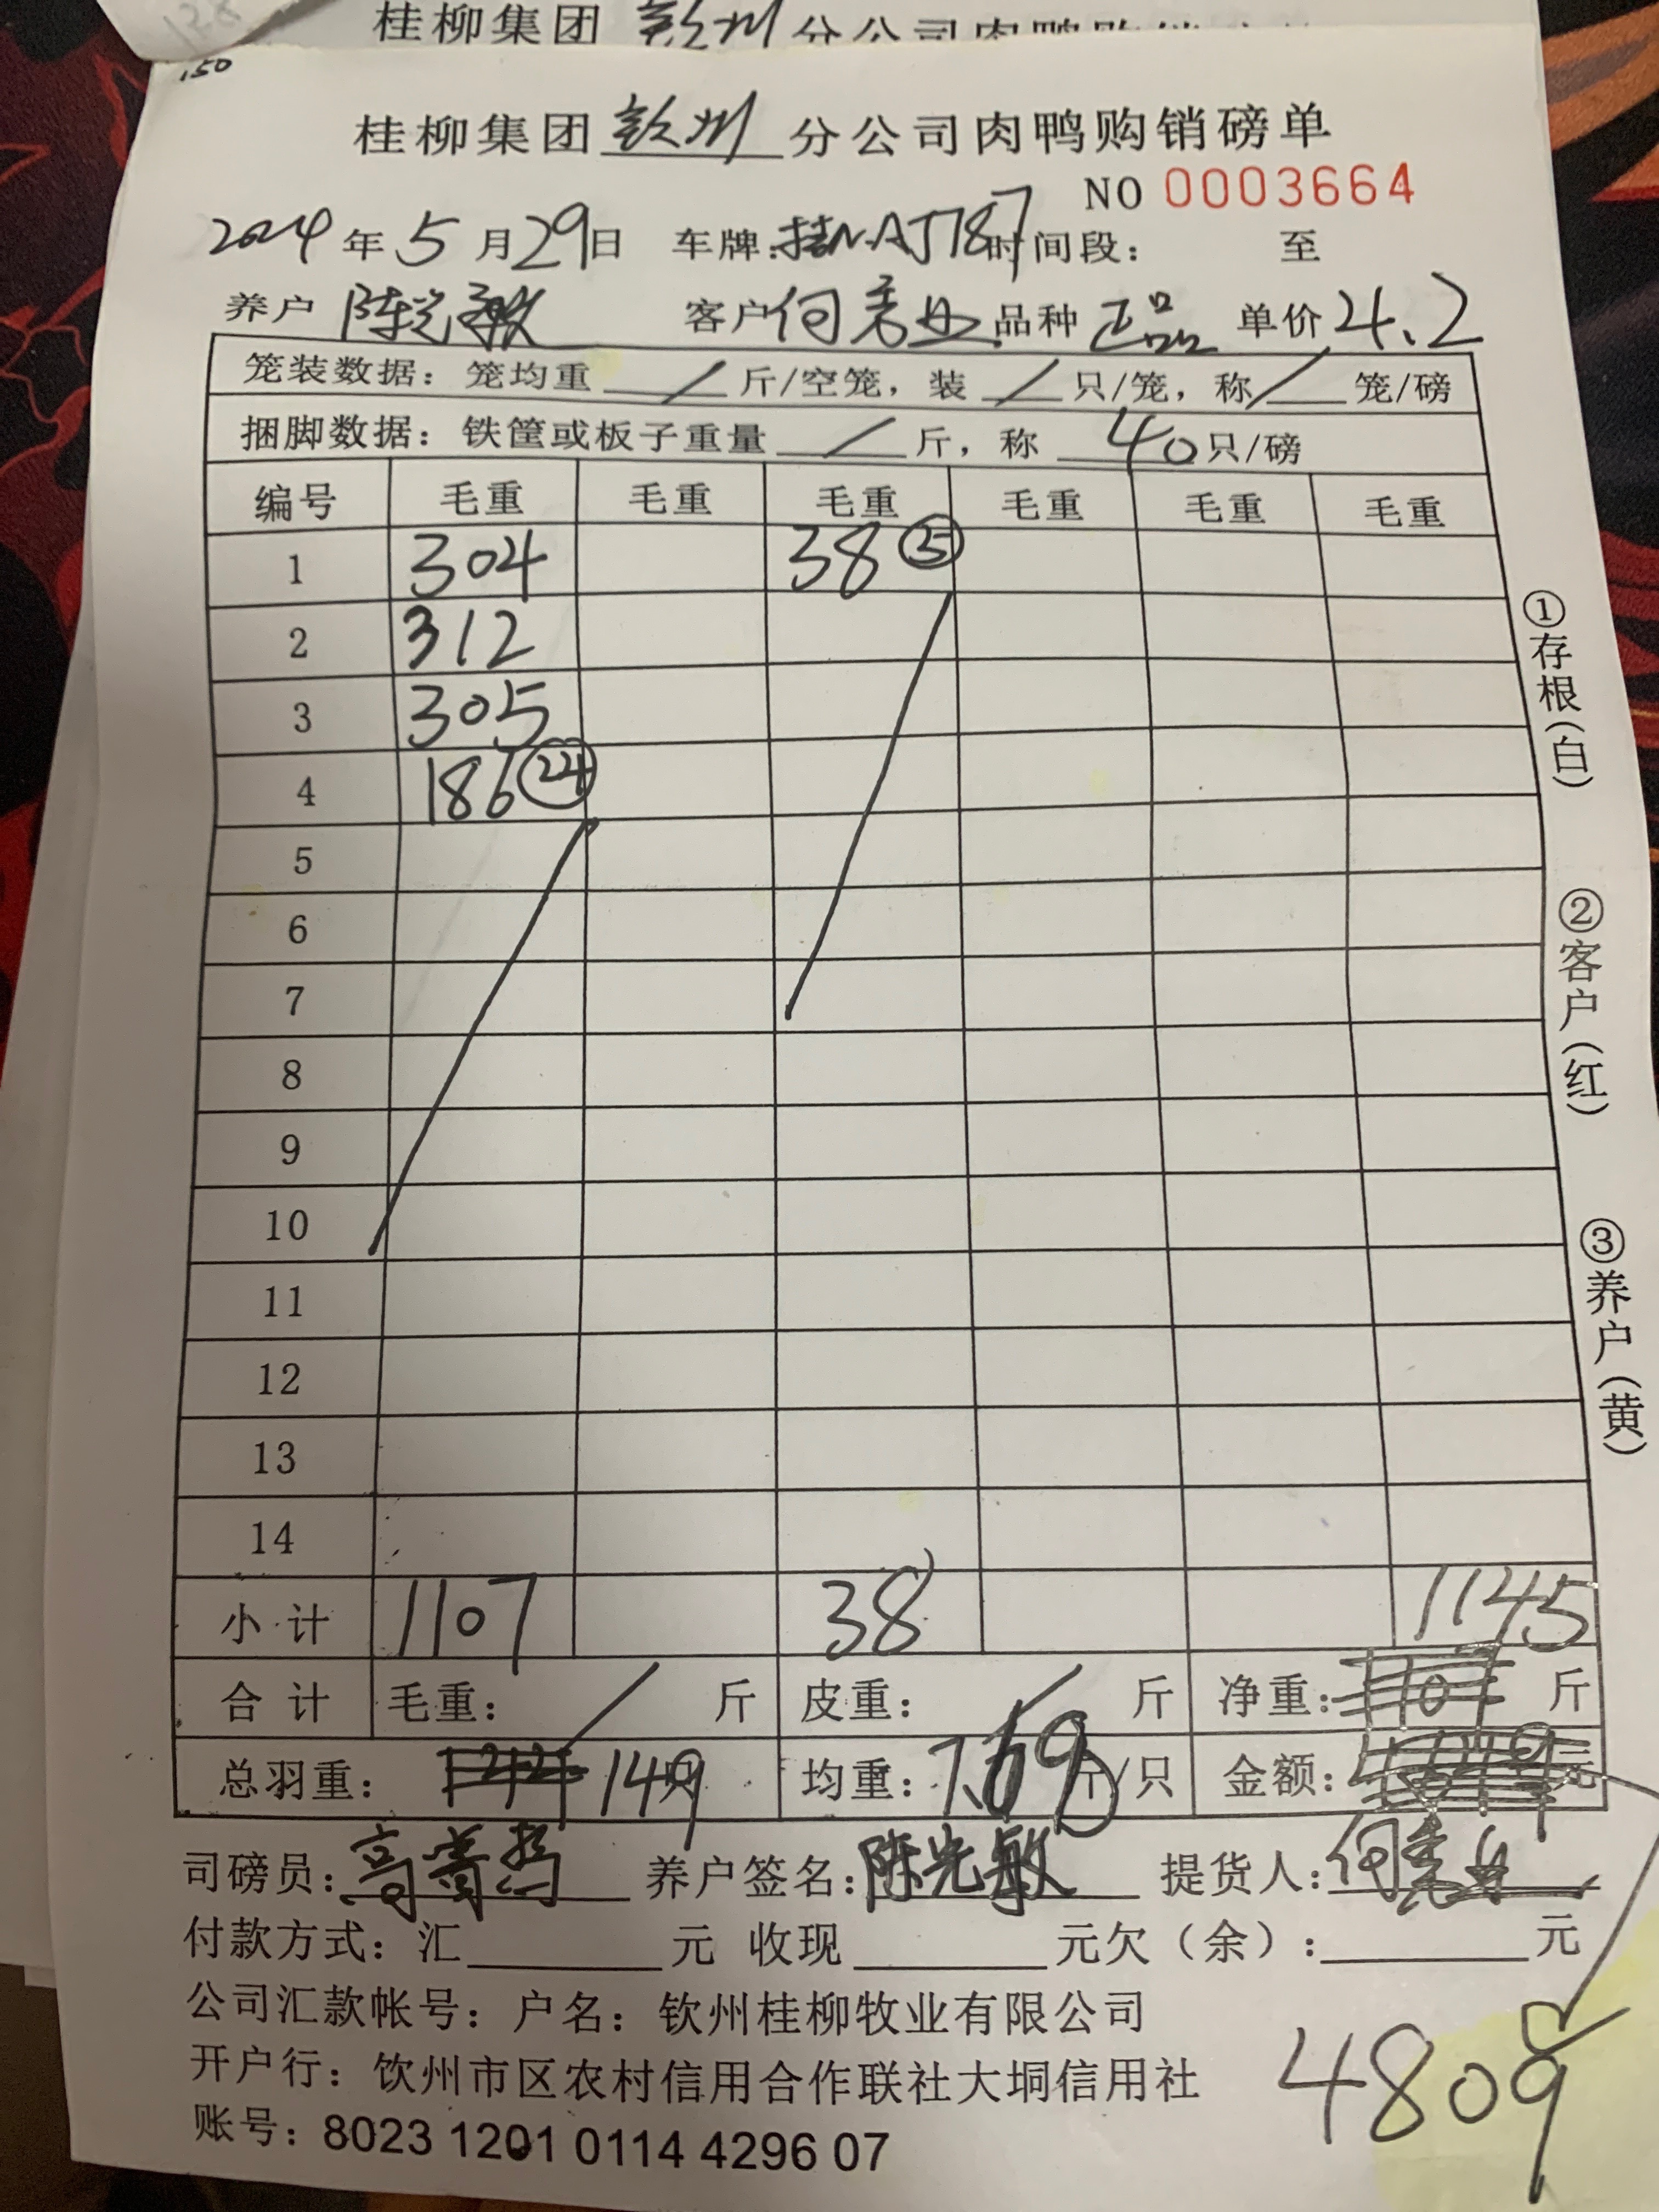 桂柳集团 钦州 分公司肉鸭购销磅单
150
桂柳集团 钦州 分公司肉鸭购销磅单
NO 0003664
2024 年 5 月 29 日 车牌: 桂N·AJ787 时间段: 至
养户 陈光敏 客户 何秀 品种 正品 单价 4.2
笼装数据: 笼均重 / 斤/空笼, 装 / 只/笼, 称 / 笼/磅
捆脚数据: 铁筐或板子重量 / 斤, 称 40 只/磅
编号 毛重 毛重 毛重 毛重 毛重 毛重
1 304 38 ⑤
2 312
3 305
4 186 ㉔
5
6
7
8
9
10
11
12
13
14
小计 1107 38 1145
合计 毛重: / 斤 皮重: / 斤 净重: 斤
总羽重: 149 只 均重: 7.69 斤/只 金额: 元
司磅员: 高 养户签名: 陈光敏 提货人: 何秀
付款方式: 汇 元 收现 元欠(余): 元
公司汇款帐号: 户名: 钦州桂柳牧业有限公司
开户行: 钦州市区农村信用合作联社大垌信用社
账号: 8023 1201 0114 4296 07
4809
①存根(白)
②客户(红)
③养户(黄)